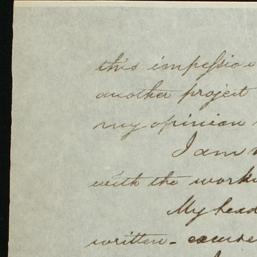 this impressio
another project
my opinion
I am
with the worki
My head
written - excuse